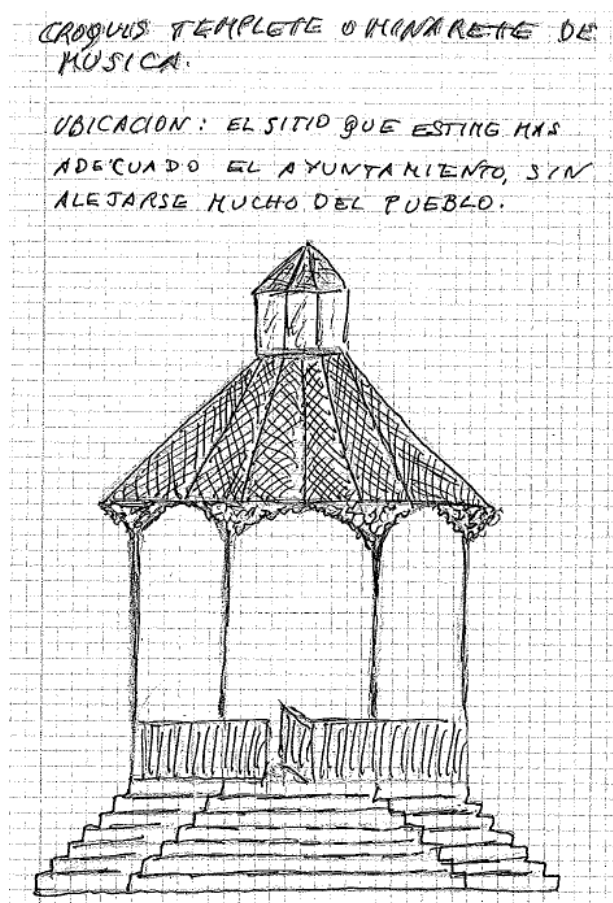 CROQUIS TEMPLETE O MINARETE DE
MUSICA.
UBICACION: EL SITIO QUE ESTIME MAS
ADECUADO EL AYUNTAMIENTO, SIN
ALEJARSE MUCHO DEL PUEBLO.